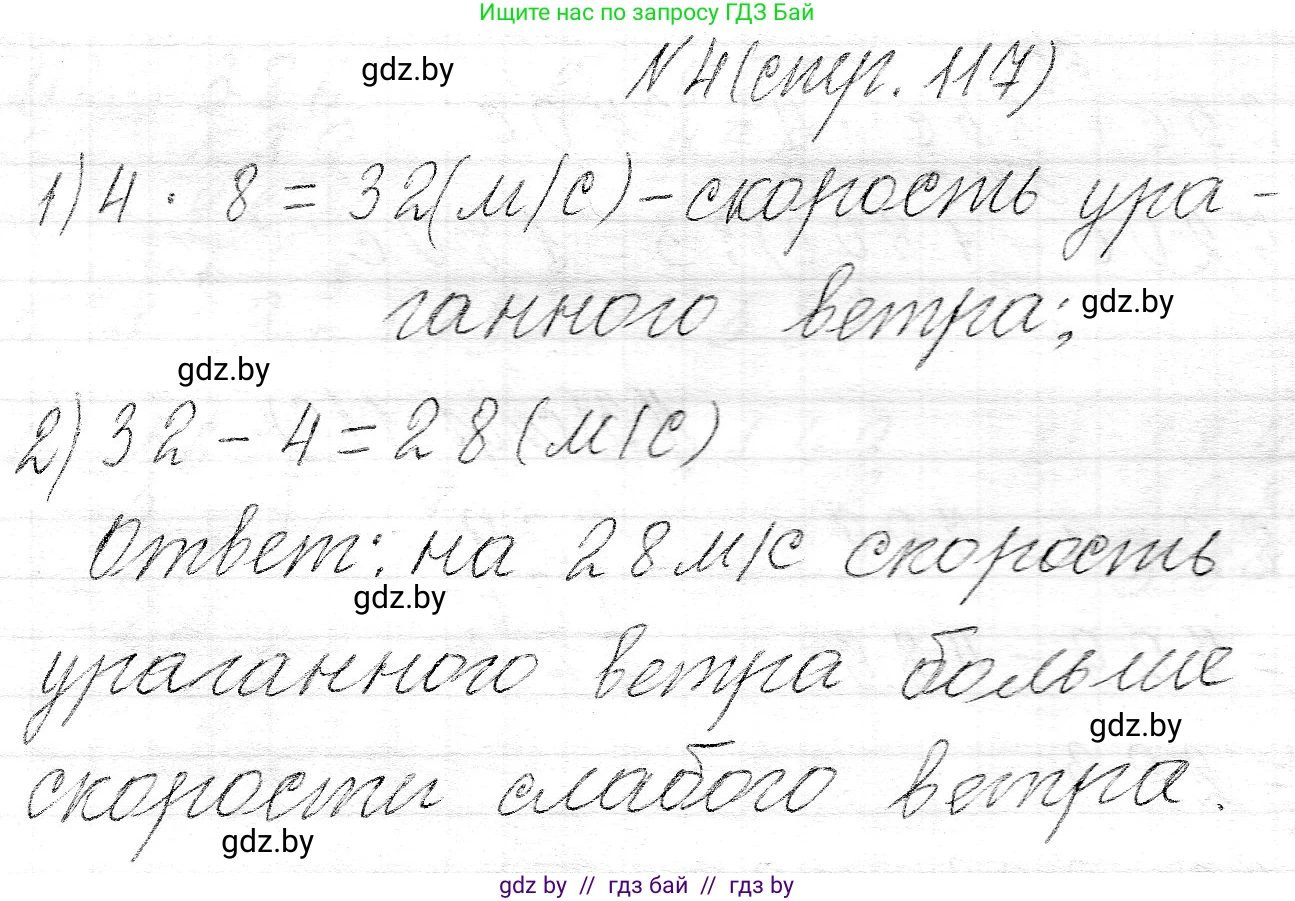 Ищите нас по запросу ГДЗ Бай
gdz.by
N 4 (стр. 117)
1) 4 · 8 = 32 (м/с) - скорость ура-
ганного ветра;
gdz.by
gdz.by
2) 32 - 4 = 28 (м/с)
Ответ: на 28 м/с скорость
gdz.by
ураганного ветра больше
gdz.by
скорости слабого ветра.
gdz.by
gdz by // гдз бай // gdz by